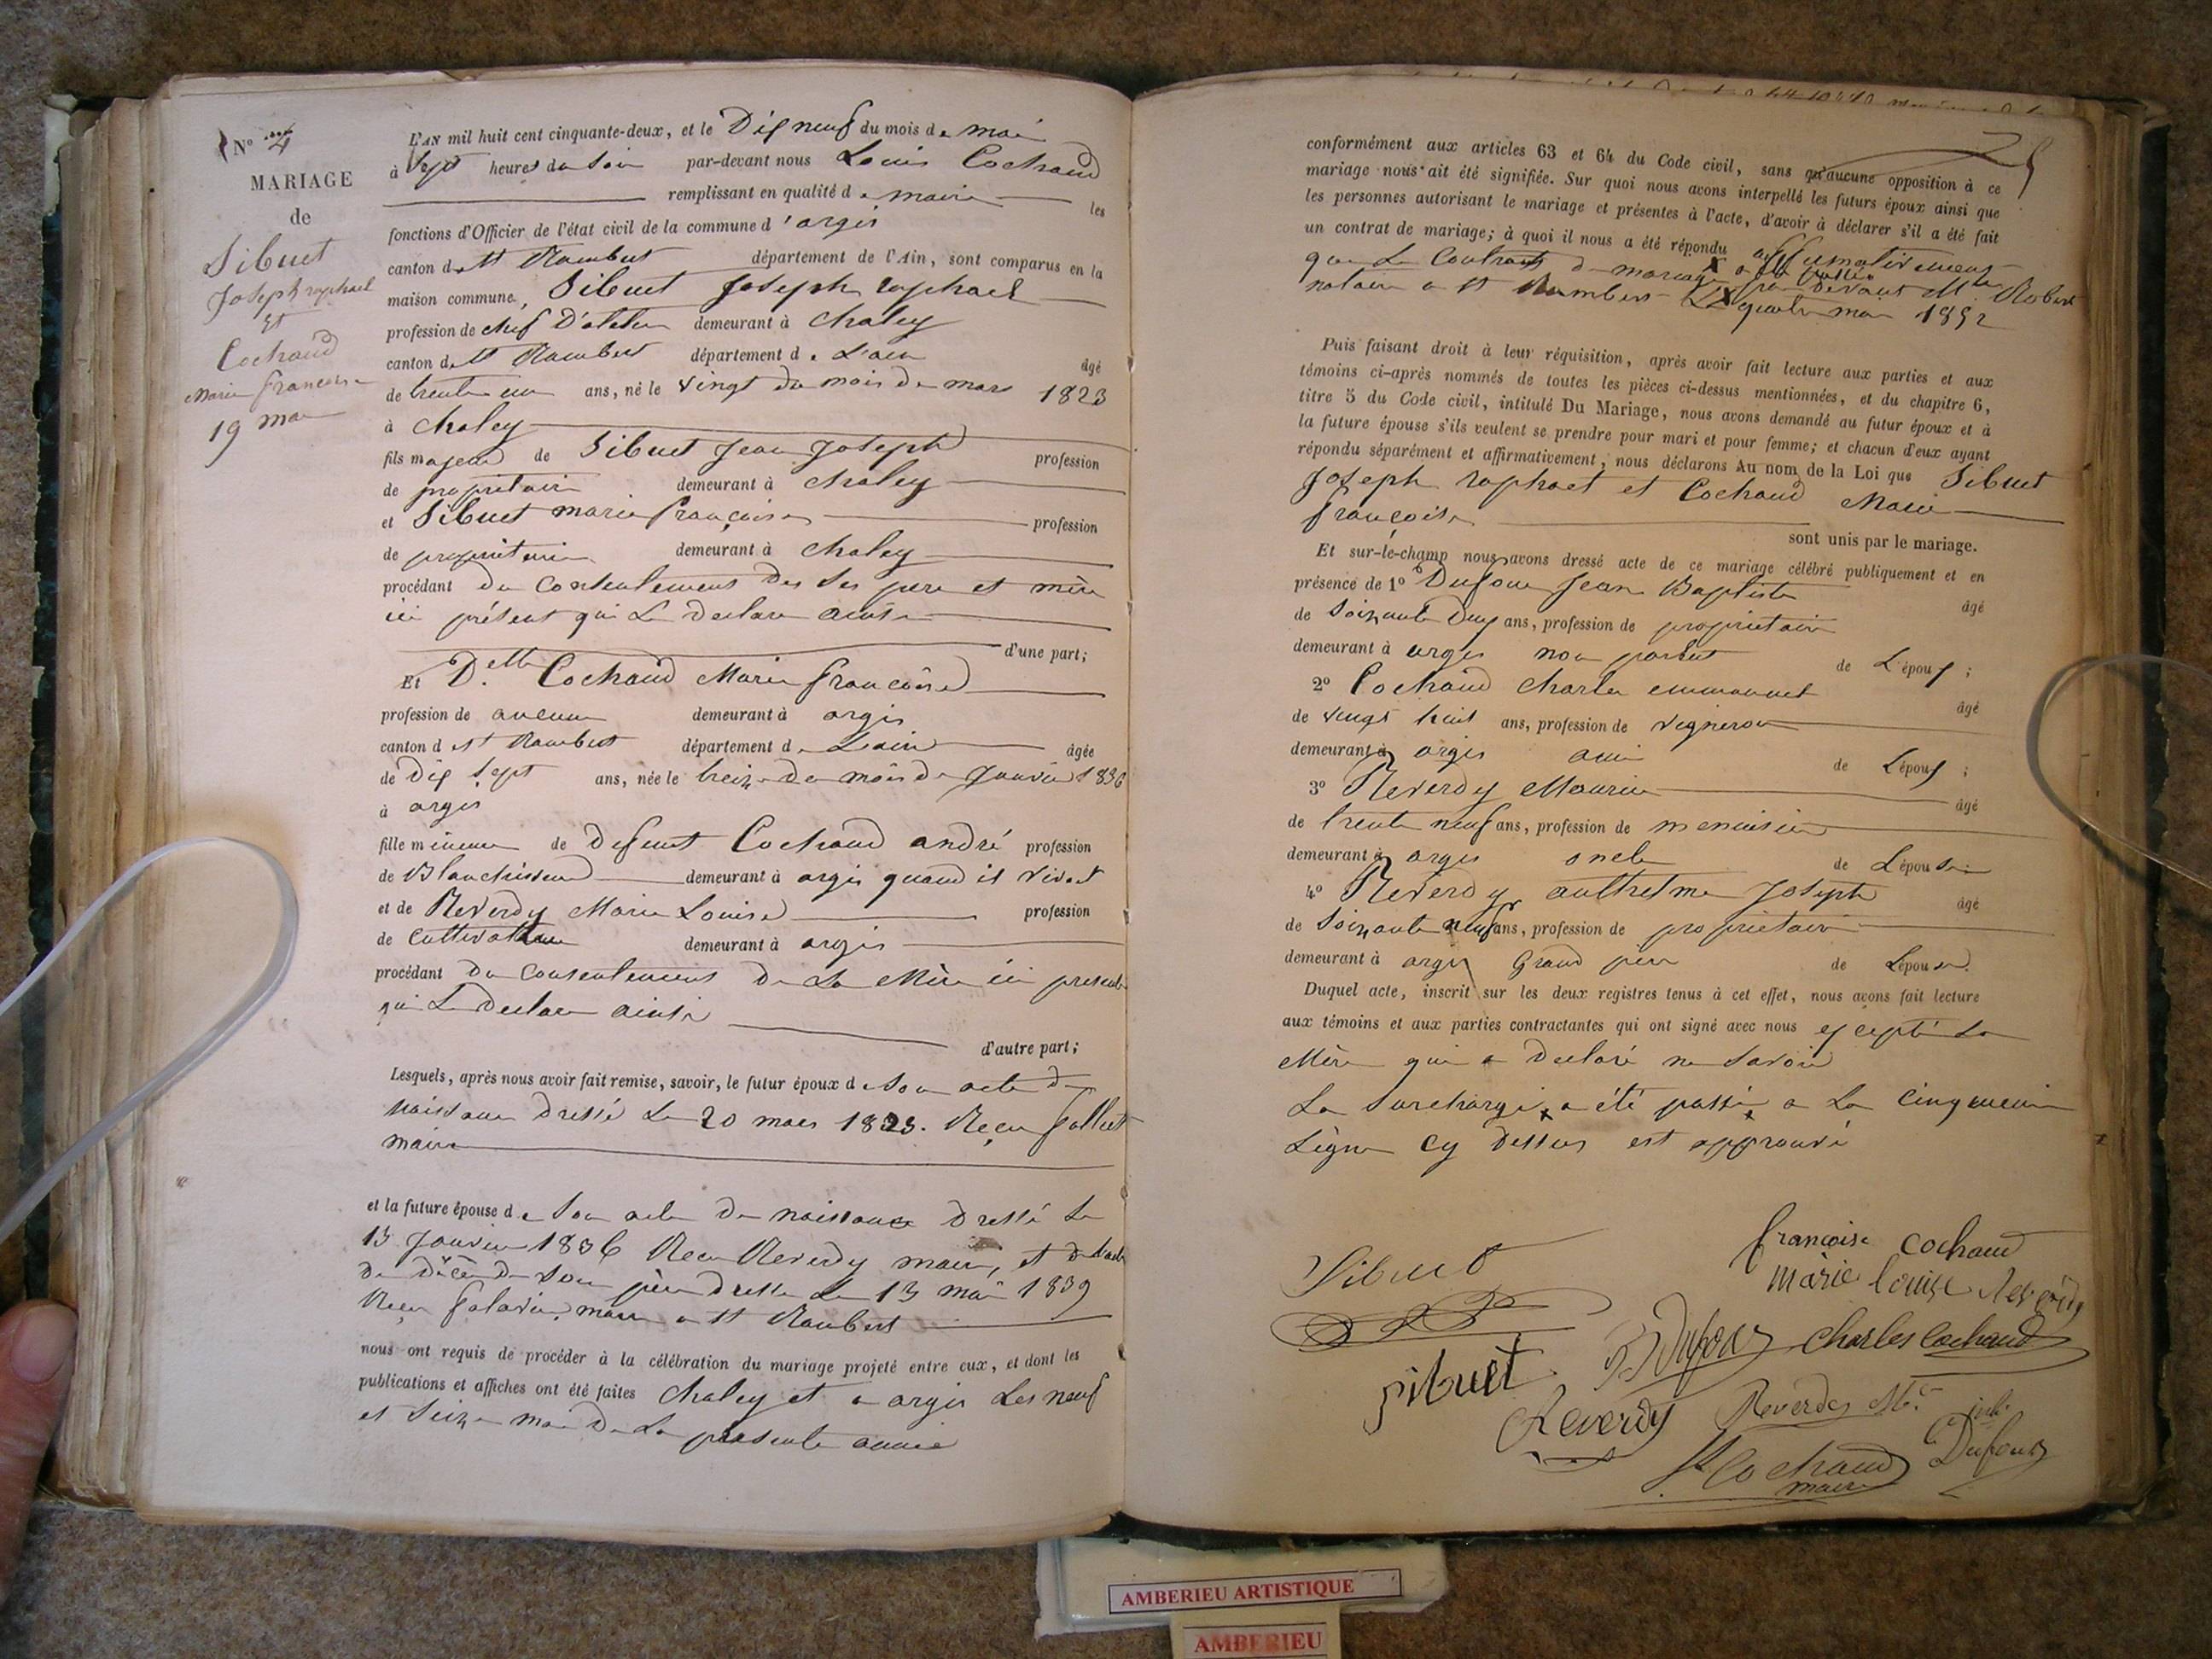 N° 4
MARIAGE
de
Sibuet
Joseph raphael
Et
Cochaud
Marie francoise
19 mai
L'AN mil huit cent cinquante-deux, et le Dix neuf du mois de mai
à Sept heures du Soir par-devant nous Louis Cochaud
remplissant en qualité de maire les
fonctions d'Officier de l'état civil de la commune d'argis
canton de St Rambert département de l'Ain, sont comparus en la
maison commune, Sibuet Joseph raphael
profession de chef D'atelier demeurant à Chaley
canton de St Rambert département de L'ain âgé
de trente un ans, né le vingt du mois de mars 1823
à Chaley
fils majeur de Sibuet Jean Joseph profession
de propriétaire demeurant à Chaley
et Sibuet marie françoise profession
de propriétaire demeurant à Chaley
procédant du Consentement des Ses pere et mère
ici présent qui Le declare ainsi
d'une part;
Et Delle Cochaud Marie françoise
profession de aucune demeurant à argis
canton de St Rambert département de Lain âgée
de Dix Sept ans, née le treize du mois de Janvier 1836
à argis
fille mineure de Defeunt Cochaud andré profession
de Blanchisseur demeurant à argis quand il vivait
et de Reverdy Marie Louise profession
de Cultivatrice demeurant à argis
procédant du Consentement de La Mère ici presente
qui Le Declare ainsi
d'autre part;
Lesquels, après nous avoir fait remise, savoir, le futur époux de Son acte de
Naissance dressé Le 20 mars 1823. Reçu Gallet
maire
et la future épouse de Son acte de naissance Dressé Le
13 Janvier 1836 Recu Reverdy maire, et de l'acte
de décè de Son père dressé Le 13 mai 1839
Reçu maire a St Rambert
nous ont requis de procéder à la célébration du mariage projeté entre eux, et dont les
publications et affiches ont été faites Chaley et a argis Les neuf
et Seize mai De La presente année
conformément aux articles 63 et 64 du Code civil, sans qu'aucune opposition à ce
mariage nous ait été signifiée. Sur quoi nous avons interpellé les futurs époux ainsi que
les personnes autorisant le mariage et présentes à l'acte, d'avoir à déclarer s'il a été fait
un contrat de mariage; à quoi il nous a été répondu affirmativement
que Le Contrat de mariage a été passé par devant Me Robert
notaire a St Rambert Le quatre mai 1852
Puis faisant droit à leur réquisition, après avoir fait lecture aux parties et aux
témoins ci-après nommés de toutes les pièces ci-dessus mentionnées, et du chapitre 6,
titre 5 du Code civil, intitulé Du Mariage, nous avons demandé au futur époux et à
la future épouse s'ils veulent se prendre pour mari et pour femme; et chacun d'eux ayant
répondu séparément et affirmativement, nous déclarons Au nom de la Loi que Sibuet
Joseph raphael et Cochaud Marie
françoise
sont unis par le mariage.
Et sur-le-champ nous avons dressé acte de ce mariage célébré publiquement et en
présence de 1° Dufour Jean Baptiste âgé
de Soixante Deux ans, profession de propriétaire
demeurant à argis non parent de L'époux;
2° Cochaud Charles emmanuel âgé
de vingt huit ans, profession de vigneron
demeurant à argis ami de Lépoux;
3° Reverdy Maurice âgé
de trente neuf ans, profession de menuisier
demeurant à argis oncle de Lépouse;
4° Reverdy anthelme Joseph âgé
de Soixante neuf ans, profession de propriétaire
demeurant à argis Grand père de Lépouse.
Duquel acte, inscrit sur les deux registres tenus à cet effet, nous avons fait lecture
aux témoins et aux parties contractantes qui ont signé avec nous excepté La
Mère qui a declaré ne Savoir
La Surchargé x a été passé x a La Cinquieme
Ligne Cy Dessus est approuvé
Sibuet
françoise Cochaud
marie louise Reverdy
Dufour Charles Cochaud
Sibuet
Reverdy Reverdy Mce
Dufour
L Cochaud
maire
AMBERIEU ARTISTIQUE
AMBERIEU